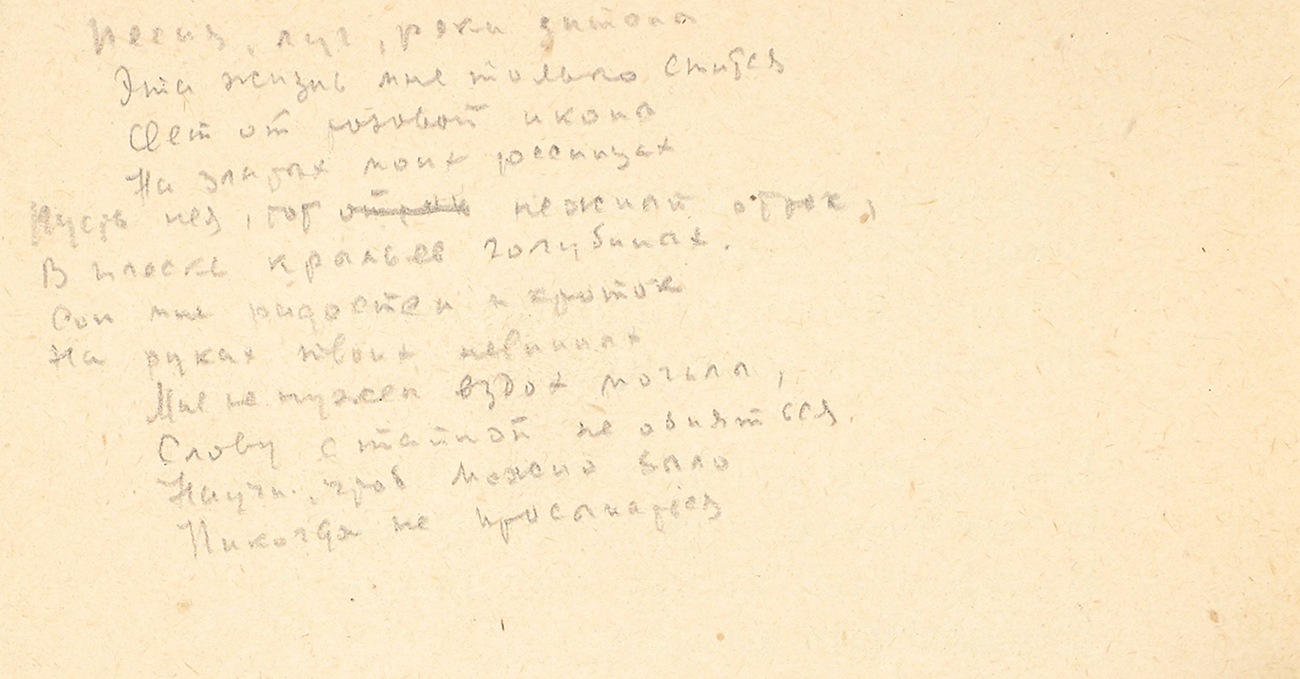 Песня, луг, реки затона
Эта жизнь мне только снится
Свет от розовой иконы
На златых моих ресницах
Пусть не я, тот нежный отрок,
В плеске крыльев голубиных.
Сон мне радостен и кроток
На руках твоих невинных
Мне не нужен вздох могилы,
Слову с тайной не обняться.
Научи, чтоб можно было
Никогда не просыпаться